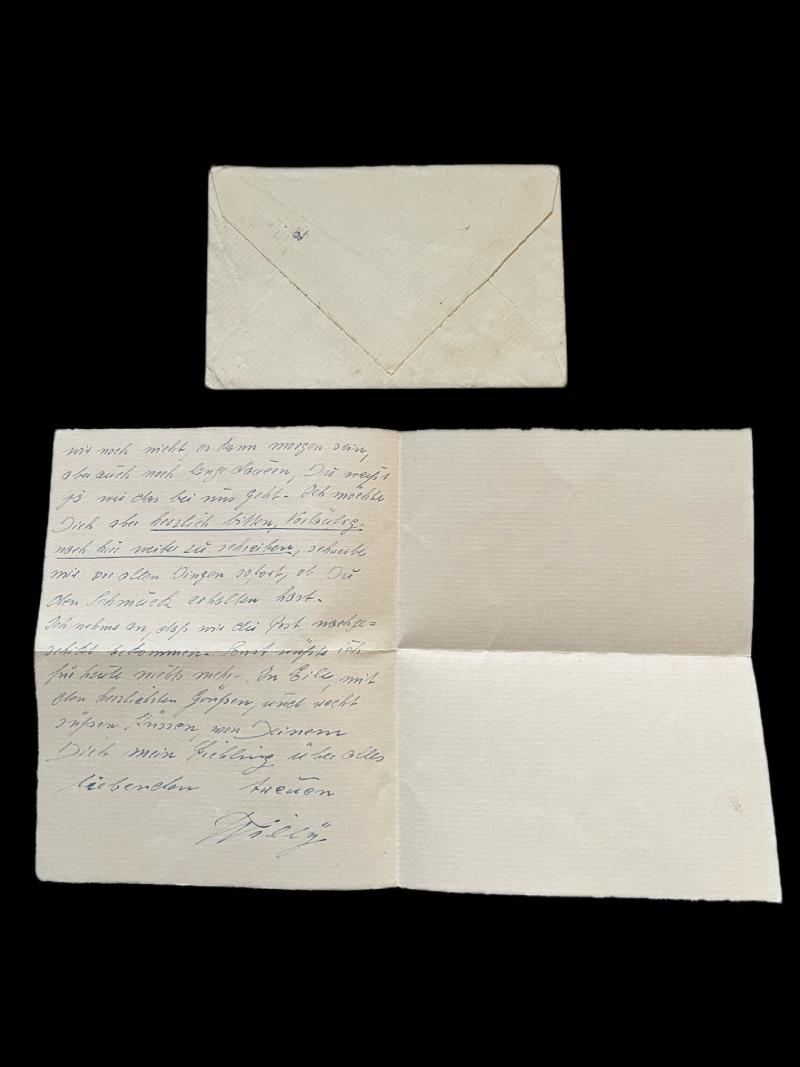 wir noch nicht, es kann morgen sein,
aber auch noch lange dauern, Du weißt
ja wie das bei uns geht. Ich möchte
Dich aber herzlich bitten, vorläufig
nach hier weiter zu schreiben, schreibe
mir vor allen Dingen sofort, ob Du
den Schmuck erhalten hast.
Ich nehme an, daß wir die Post nachge=
schikt bekommen. Sonst wüßte ich
für heute nichts mehr. In Eile, mit
den herzlichsten Grüßen, und recht
süßen Küssen, von Deinem
Dich mein Liebling über alles
liebenden treuen
Willÿ